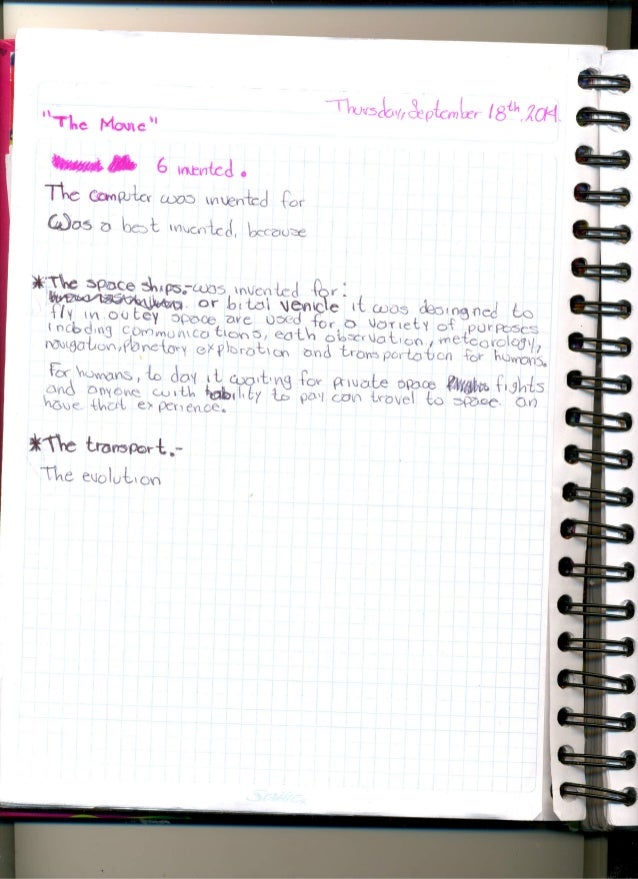 Thursday, September 18th, 2014.
"The Movie"
6 invented.
The computer was invented for
Was a best invented, because
*The space ships.-was invented for:
or bital venicle it was desingned to
fly in outey space are used for a variety of purposes
inclding communications, eath observation, meteorology,
navigation, planetory exploration and transportation for humans.
For humans, to day it waiting for private space fights
and anyone with hability to pay can travel to space an
have that experience.
*The transport.-
The evolution